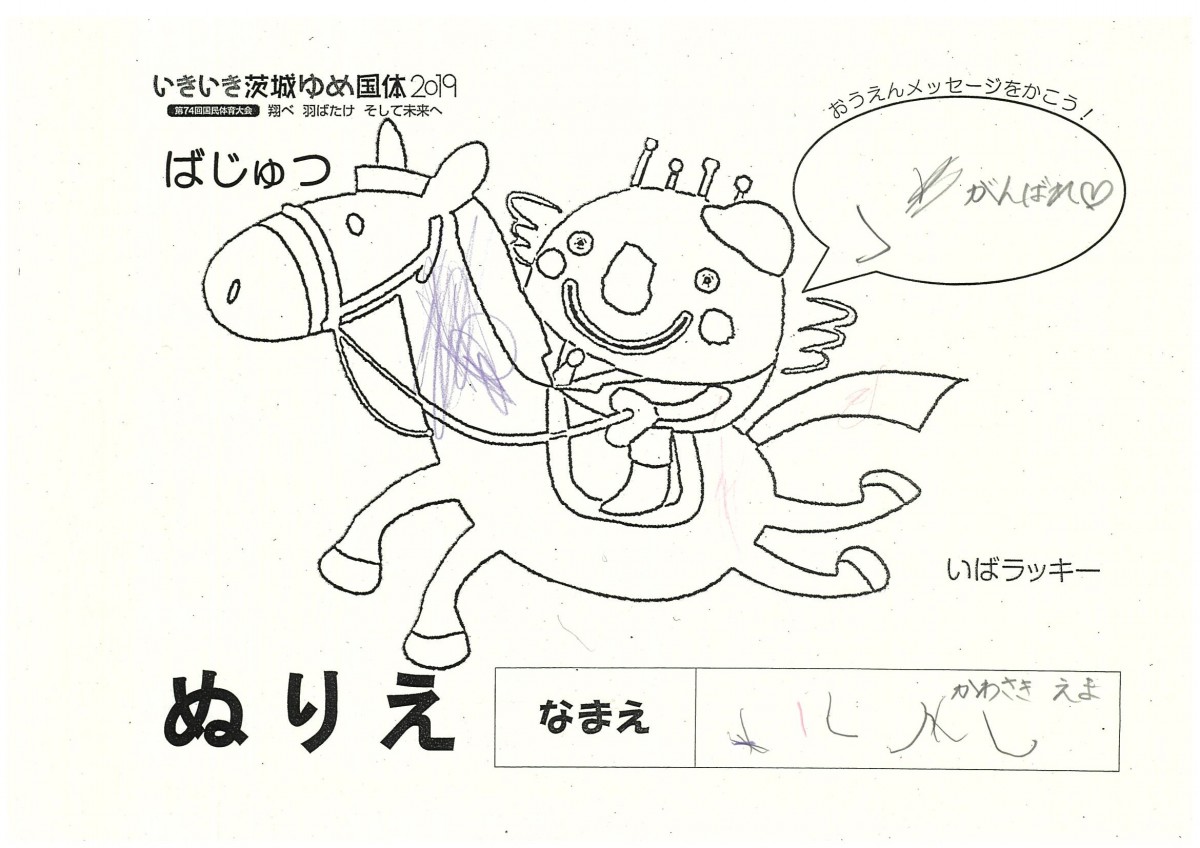 いきいき茨城ゆめ国体2019
第74回国民体育大会 翔べ 羽ばたけ そして未来へ
ばじゅつ
おうえんメッセージをかこう!
がんばれ♡
いばラッキー
ぬりえ
なまえ
かわさき えま